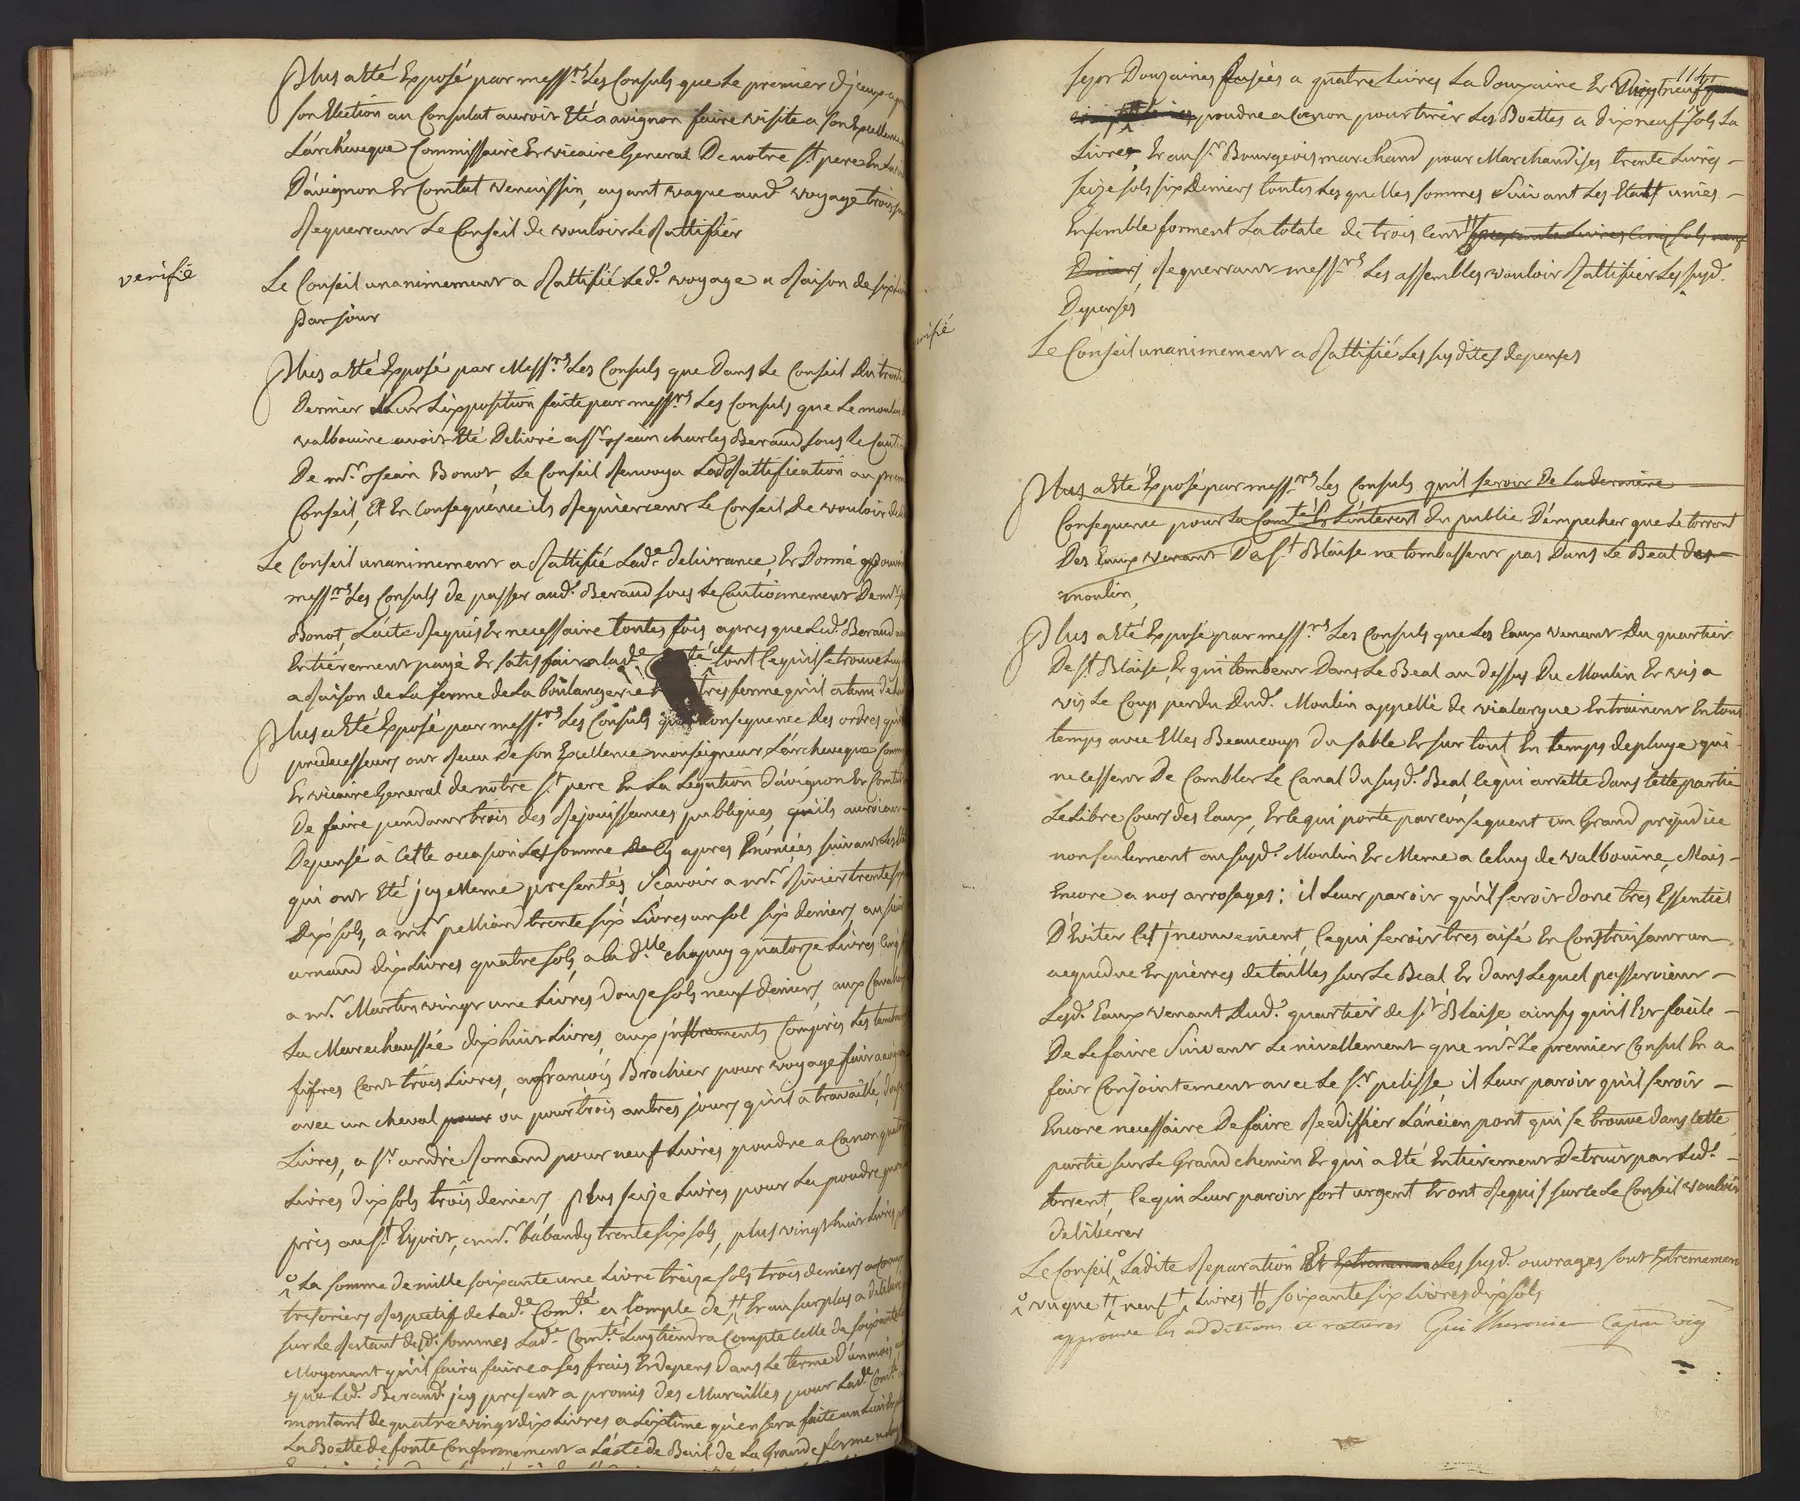 Plus a Eté Exposé par mess.rs Les Consuls que Le premier d'jceux
son Election au Consulat auroit Eté a avignon faire visite a son Excellence
L'archeveque Commissaire Er vicaire General De notre S.t pere En
D'avignon Er Comtat venaissin, ayant vaque aud.t voyage trois
Requerrant Le Conseil de vouloir Le Rattifier
verifié
Le Conseil unanimement a Rattifié Led.t voyage a Raison de six
par jour
Plus a Eté Exposé par Mess.rs Les Consuls que Dans Le Conseil Du trente
Dernier sur L'exposition faite par mess.rs Les Consuls que Le moulin
valbouine avoit Eté Delivré a s.r Jean Charles Beraud sous Le
De m.r Jean Bonot, Le Conseil Renvoya Lad.e Rattification au
Conseil, Et En Consequence ils Requierent Le Conseil De vouloir
Le Conseil unanimement a Rattifié Lad.e delivrance, Er Donné
mess.rs Les Consuls de passer aud.t Beraud sous Le Cautionnement De m.r
Bonot, L'acte Requis Er necessaire toutes fois, apres que Led.t Beraud
Entièrement payé Er satisfait a lad.e tout ce qu'il se trouve
a Raison de La ferme de La boulangerie ferme qu'il a tenu
Plus a Eté Exposé par mess.rs Les Consuls qu'en Consequence Des ordres
predecesseurs ont Reçu De son Excellence monseigneur L'archeveque
Er vicaire General de notre S.t pere En La Legation D'avignon Er Comtat
De faire pendant trois des Rejouissances publiques, qu'ils auroient
Depensé a Cette occasion Les somme De Cy apres Enoncées suivant Les
qui ont Eté jcy Meme presentés, Sçavoir a m.r Rivier trente
Dix sols, a m.r pelliard trente six Livres un sol six deniers, au sieur
arnaud dix Livres quatre sols, a la d.lle Chapuy quatorze Livres Cinq
a m.r Martin vingt une Livres Douze sols neuf deniers, aux Cavaliers
La Marechaussée dix huit Livres, aux jnstruments Compris Les
fifres Cent trois Livres, a françois Brochier pour voyage fait a
avec un cheval pour ou pour trois autres jours qu'il a travaillé,
Livres, a s.r andré Romand pour neuf Livres poudre a Canon
Livres Dix sols trois deniers, plus seize Livres pour La poudre
pris au S.t Esprit, a m.r babandy trente six sols, plus vingt huit Livres
La somme de mille soixante une Livre treize sols trois deniers
tresoriers Respectif de Lad.e Com.té a compte de Er au surplus a
sur Le Restant desd. sommes Lad.e Com.té Luy tiendra Compte Celle de soixante
Moyenant qu'il faira faire a ses frais Er depens Dans Le terme d'un mois
que Led.t Beraud jcy present a promis des Murailles pour Lad.e Com.té
montant de quatre vingt dix Livres a L'extime qu'en sera faite
La Boette de fonte Conformement a L'acte de Bail de La Grande ferme
114
six Douzaines fusées a quatre Livres La Douzaine Er vingt neuf
poudre a Canon pour tirer Les Boettes a dix neuf sols La
Livre, Er au s.r Bourgeois marchand pour Marchandises trente Livres
seize sols six Deniers toutes Les quelles sommes Suivant Les Etats unies
Ensemble forment La totale de trois Cent soixante Livres Cinq sols neuf
Deniers, Requerrant mess.rs Les assemblés vouloir Rattifier Les susd.
Depenses
Le Conseil unanimement a Rattifié Les susdites depenses
Plus a Eté Exposé par mess.rs Les Consuls qu'il seroit De La derniere
Consequence pour La Com.té Er L'interest du public D'empecher que Le torrent
Des Eaux venant De S.t Blaise ne tombassent pas Dans Le Beal des
moulin,
Plus a Eté Exposé par mess.rs Les Consuls que Les Eaux venant Du quartier
De S.t Blaise, Er qui tombent Dans Le Beal au dessus Du Moulin Er vis a
vis Le Coup perdu Dud.t Moulin appellé de vialargue Entrainent En tout
temps avec Elles Beaucoup Du sable Er sur tout En temps de pluye qui
ne Cessent De Combler Le Canal Du susd.t Beal, Ce qui arrette dans Cette partie
Le Libre Cours des Eaux, Er Ce qui porte par Consequent un Grand prejudice
non seulement au susd.t Moulin Er Meme a Celuy de valbouine, Mais
Encore a nos arrosages; il Leur paroit qu'il seroit donc tres Essentiel
D'Eviter Cet jnconvenient, Ce qui seroit tres aisé En Construisant un
aqueduc En pierres de tailles sur Le Beal, Er dans Lequel passeroient
Lesd. Eaux venant Dud.t quartier de S.t Blaise, ainsy qu'il Est facile
De Le faire Suivant Le nivellement que m.r Le premier Consul En a
fait Conjointement avec Le s.r pelisse, il Leur paroit qu'il seroit
Encore necessaire De faire Reediffier L'ancien pont qui se trouve dans Cette
partie sur Le Grand chemin Er qui a Eté Entierement Detruit par Led.t
torrent, Ce qui Leur paroit fort urgent Er ont Requis sur Ce Le Conseil vouloir
deliberer
Le Conseil Ladite Reparation Et Extremement Les susd. ouvrages sont Extremement
vaque neuf Livres soixante six Livres dix sols
approuve les additions et ratures